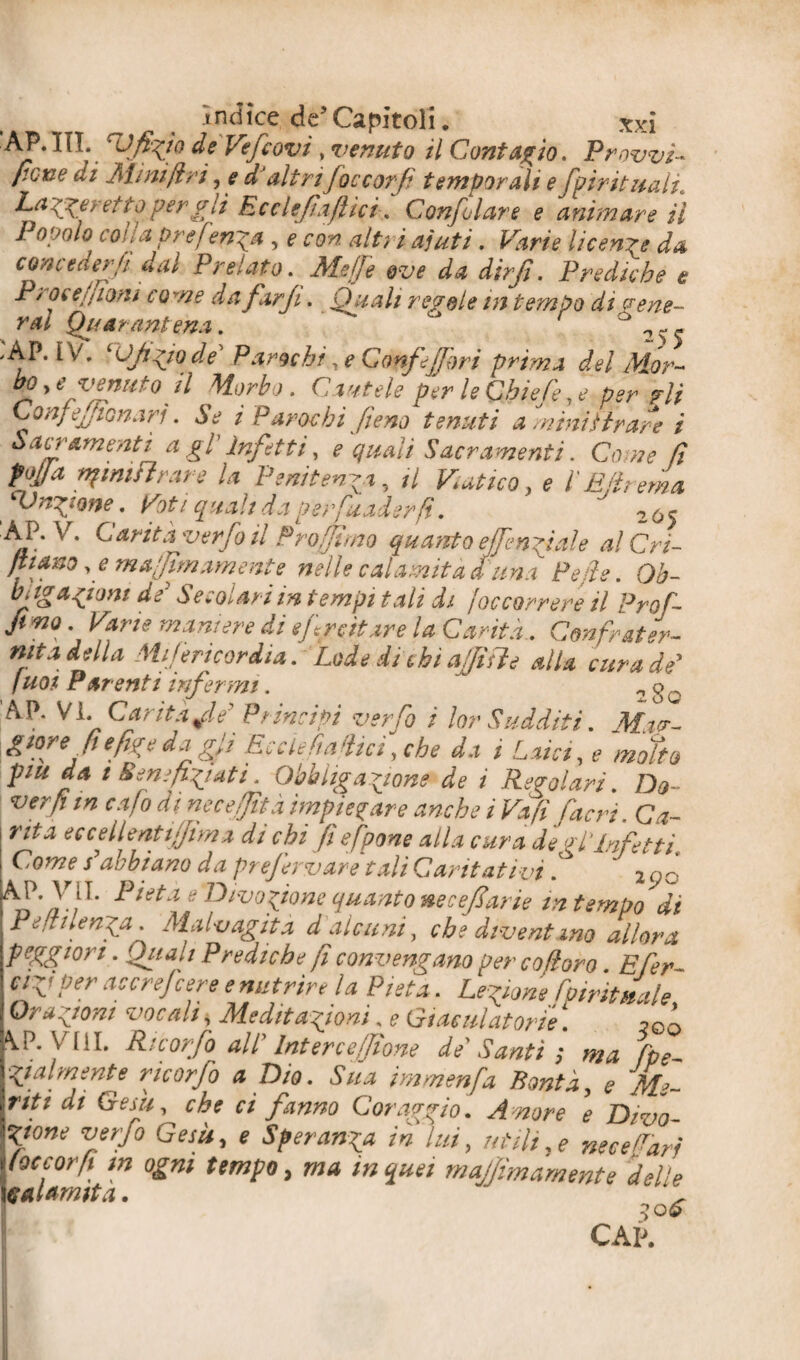 Indice de' Capitoli. xxi
AP. III. Vfizio de Vescovi, venuto il Contagio. Provvi-
sione di Ministri, e d'altri soccorsi temporali e spirituali.
Lazzeretto per gli Ecclesiastici. Consolare e animare il
Popolo colla presenza, e con altri ajuti. Varie licenze da
concedersi dal Prelato. Messe ove da dirsi. Prediche e
Processioni come da farsi. Quali regole in tempo di gene-
ral Quarantena. 255
AP. IV. Vfizio de' Parochi, e Confessori prima del Mor-
bo, e venuto il Morbo. Cautele per le Chiese, e per gli
Confessionarj. Se i Parochi sieno tenuti a ministrare i
Sacramenti a gl' Infetti, e quali Sacramenti. Come si
possa ministrare la Penitenza, il Viatico, e l'Estrema
Vnzione. Voti quali da persuadersi. 265
AP. V. Carità verso il Prossimo quanto essenziale al Cri-
stiano, e massimamente nelle calamità d'una Peste. Ob-
bligazioni de' Secolari in tempi tali di soccorrere il Pros-
simo. Varie maniere di esercitare la Carità. Confrater-
nità della Misericordia. Lode di chi assiste alla cura de'
suoi Parenti infermi. 280
AP. VI. Carità de' Principi verso i lor Sudditi. Mag-
giore si esige da gli Ecclesiastici, che da i Laici, e molto
più da i Benefiziati. Obbligazione de i Regolari. Do-
versi in caso di necessità impiegare anche i Vasi sacri. Ca-
rità eccellentissima di chi si espone alla cura de gl'Infetti.
Come s'abbiano da preservare tali Caritativi. 290
AP. VII. Pietà e Divozione quanto necessarie in tempo di
Pestilenza. Malvagità d'alcuni, che diventano allora
peggiori. Quali Prediche si convengano per costoro. Eser-
cizi per accrescere e nutrire la Pietà. Lezione spirituale,
Orazioni vocali, Meditazioni, e Giaculatorie. 300
AP. VIII. Ricorso all' Intercessione de' Santi; ma spe-
zialmente ricorso a Dio. Sua immensa Bontà, e Me-
riti di Gesù, che ci fanno Coraggio. Amore e Divo-
zione verso Gesù, e Speranza in lui, utili, e necessarj
soccorsi in ogni tempo, ma in quei massimamente delle
calamità. 306
CAP.